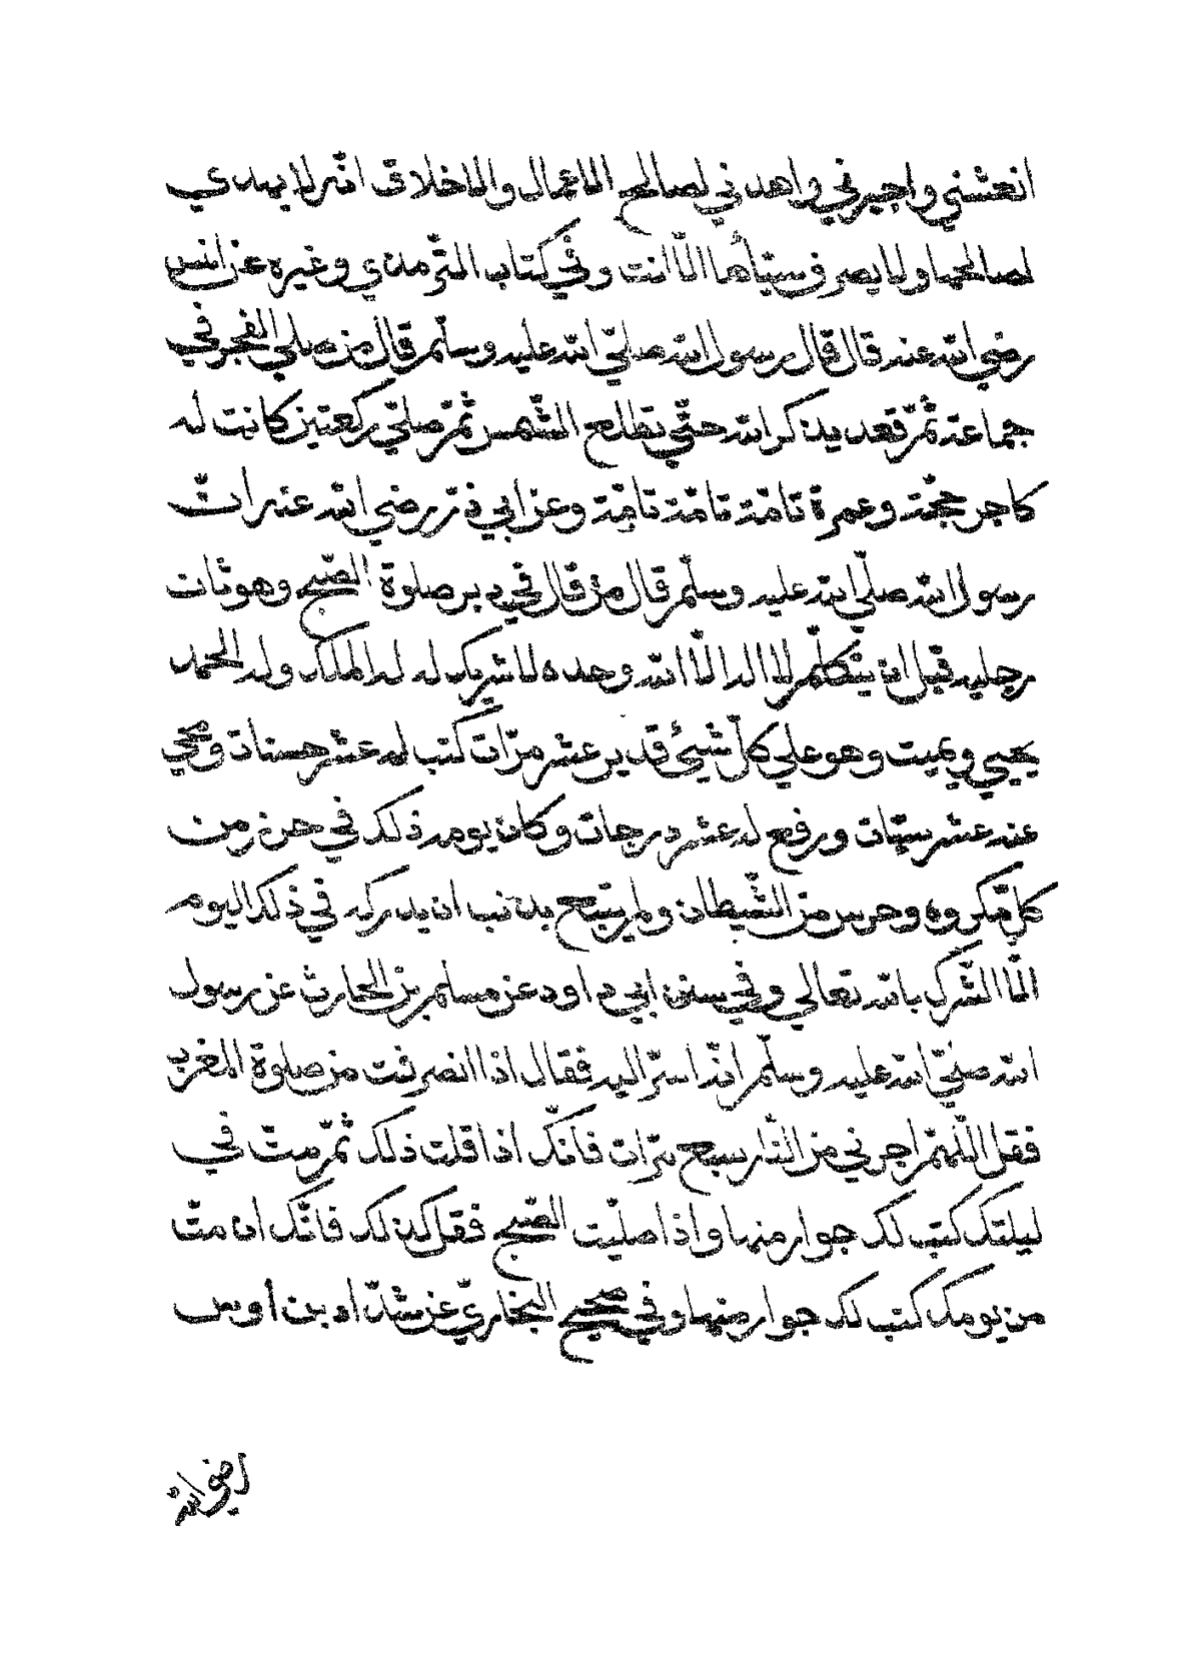 انعشني واجبرني واهدني لصالح الاعمال والاخلاق انّه لا يهدي
لصالحها ولا يصرف سيّأها الّا انت وفي كتاب الترمذي وغيره عن انس
رضي الله عنه قال قال رسول الله صلّي الله عليه وسلّم قال من صلي الفجر في
جماعة ثمّ قعد يذكر الله حتّي تطلع الشّمس ثمّ صلّي ركعتين كانت له
كاجر حجّة وعمرة تامّة تامّة تامّة وعن ابي ذرّ رضي الله عنه انّ
رسول الله صلّي الله عليه وسلّم قال من قال في دبر صلوة الصّبح وهو ثان
رجليه قبل ان يتكلّم لا اله الّا الله وحده لا شريك له له الملك وله الحمد
يحيي ويميت وهو علي كلّ شيئ قدير عشر مرّات كتب له عشر حسنات ومحي
عنه عشر سيّات ورفع له عشر درجات وكان يومه ذلك في حرز من
كلّ مكروه وحرس من الشّيطان ولم يتبع بذنب ان يدركه في ذلك اليوم
الّا الشّرك بالله تعالي وفي سنن ابي داود عن مسلم بن الحارث عن رسول
الله صلّي الله عليه وسلّم انّه اسرّ اليه فقال اذا انصرفت من صلوة المغرب
فقل اللّهمّ اجرني من النّار سبع مرّات فانّك اذا قلت ذلك ثمّ متّ في
ليلتك كتب لك جوار منها واذا صلّيت الصّبح فقل كذلك فانّك ان متّ
من يومك كتب لك جوار منها وفي صحيح البخاريّ عن شدّاد بن أوس
رضي الله